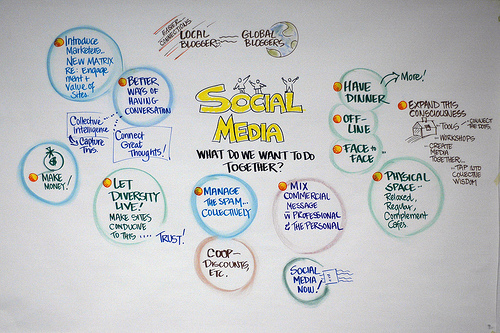 EASIER
CONNECTIONS
LOCAL
BLOGGERS
GLOBAL
BLOGGERS
Introduce
Marketers..
NEW MATRIX
RE: Engage
ment +
Value of
Sites.
BETTER
WAYS OF
HAVING
CONVERSATION
Collective
Intelligence
→ Capture
This.
Connect
Great
Thoughts!
SOCIAL
MEDIA
WHAT DO WE WANT TO DO
TOGETHER?
HAVE
DINNER
More!
OFF-
LINE
FACE to
FACE
EXPAND THIS
CONSCIOUSNESS
- TOOLS - CONNECT
THE DOTS.
- WORKSHOPS
- CREATE
MEDIA
TOGETHER..
- TAP INTO
COLLECTIVE
WISDOM
$
MAKE
MONEY!
LET
DIVERSITY
LIVE!
MAKE SITES
CONDUCIVE
TO THIS .... TRUST!
MANAGE
THE SPAM...
COLLECTIVELY
MIX
COMMERCIAL
MESSAGE
w/ PROFESSIONAL
& THE PERSONAL
PHYSICAL
SPACE--
Relaxed,
Regular,
Complement
Cafes.
COOP-
DISCOUNTS,
ETC.
SOCIAL
MEDIA
NOW!